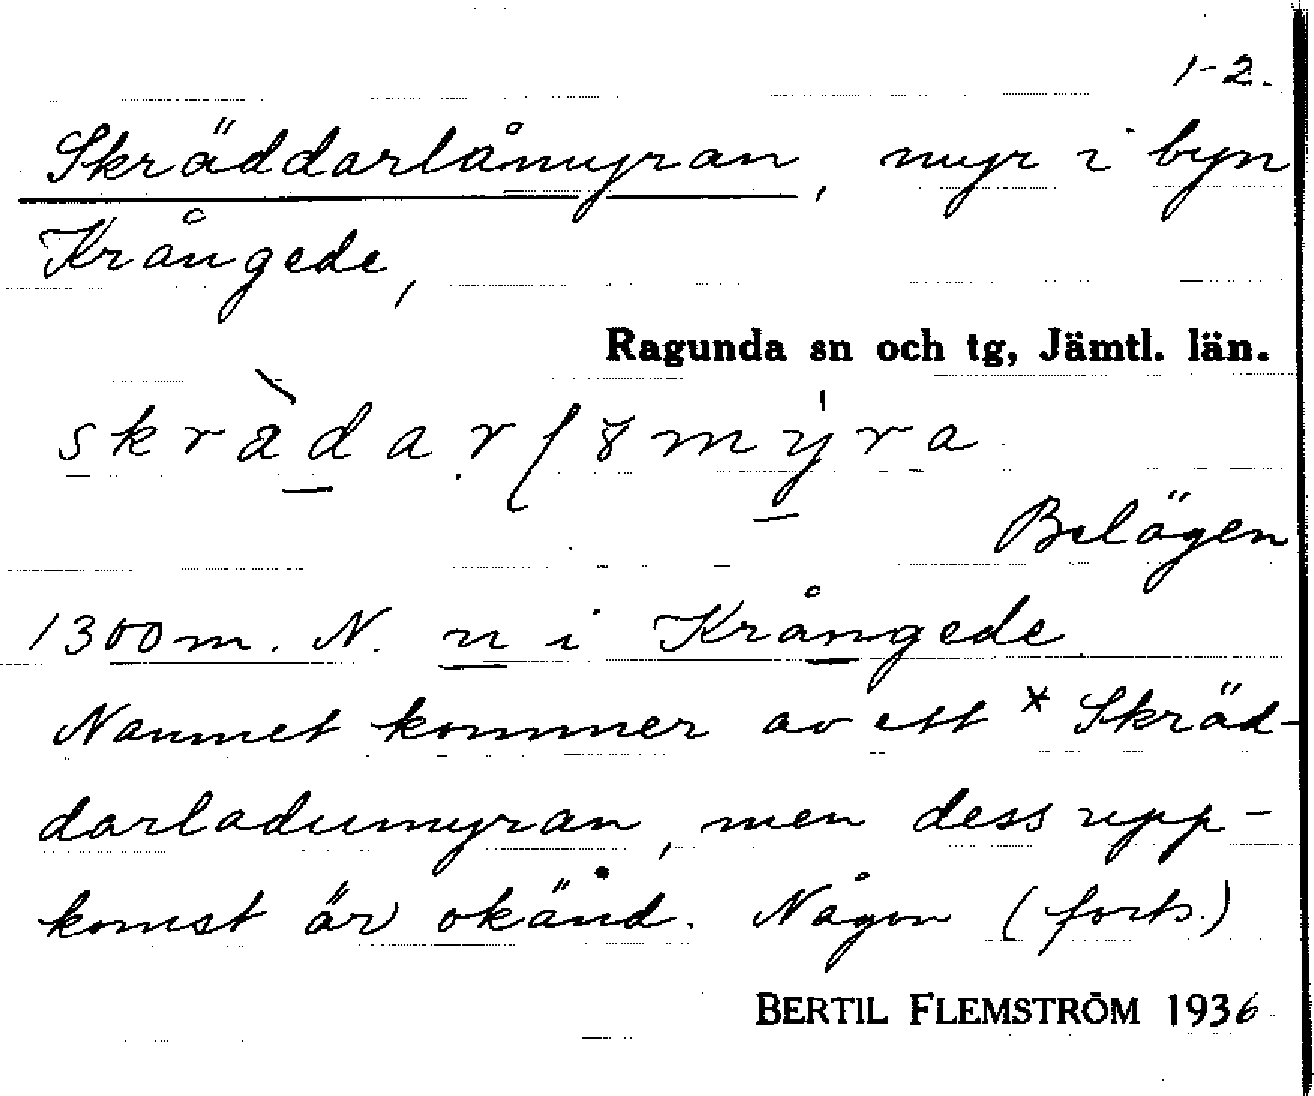 1-2.
Skräddarlåmyran, myr i byn
Krångede,
Ragunda sn och tg, Jämtl. län.
Belägen
1300 m. N. n i Krångede.
Namnet kommer av ett * Skräd-
darladumyran, men dess upp-
komst är okänd. Någon (forts.)
BERTIL FLEMSTRÖM 1936